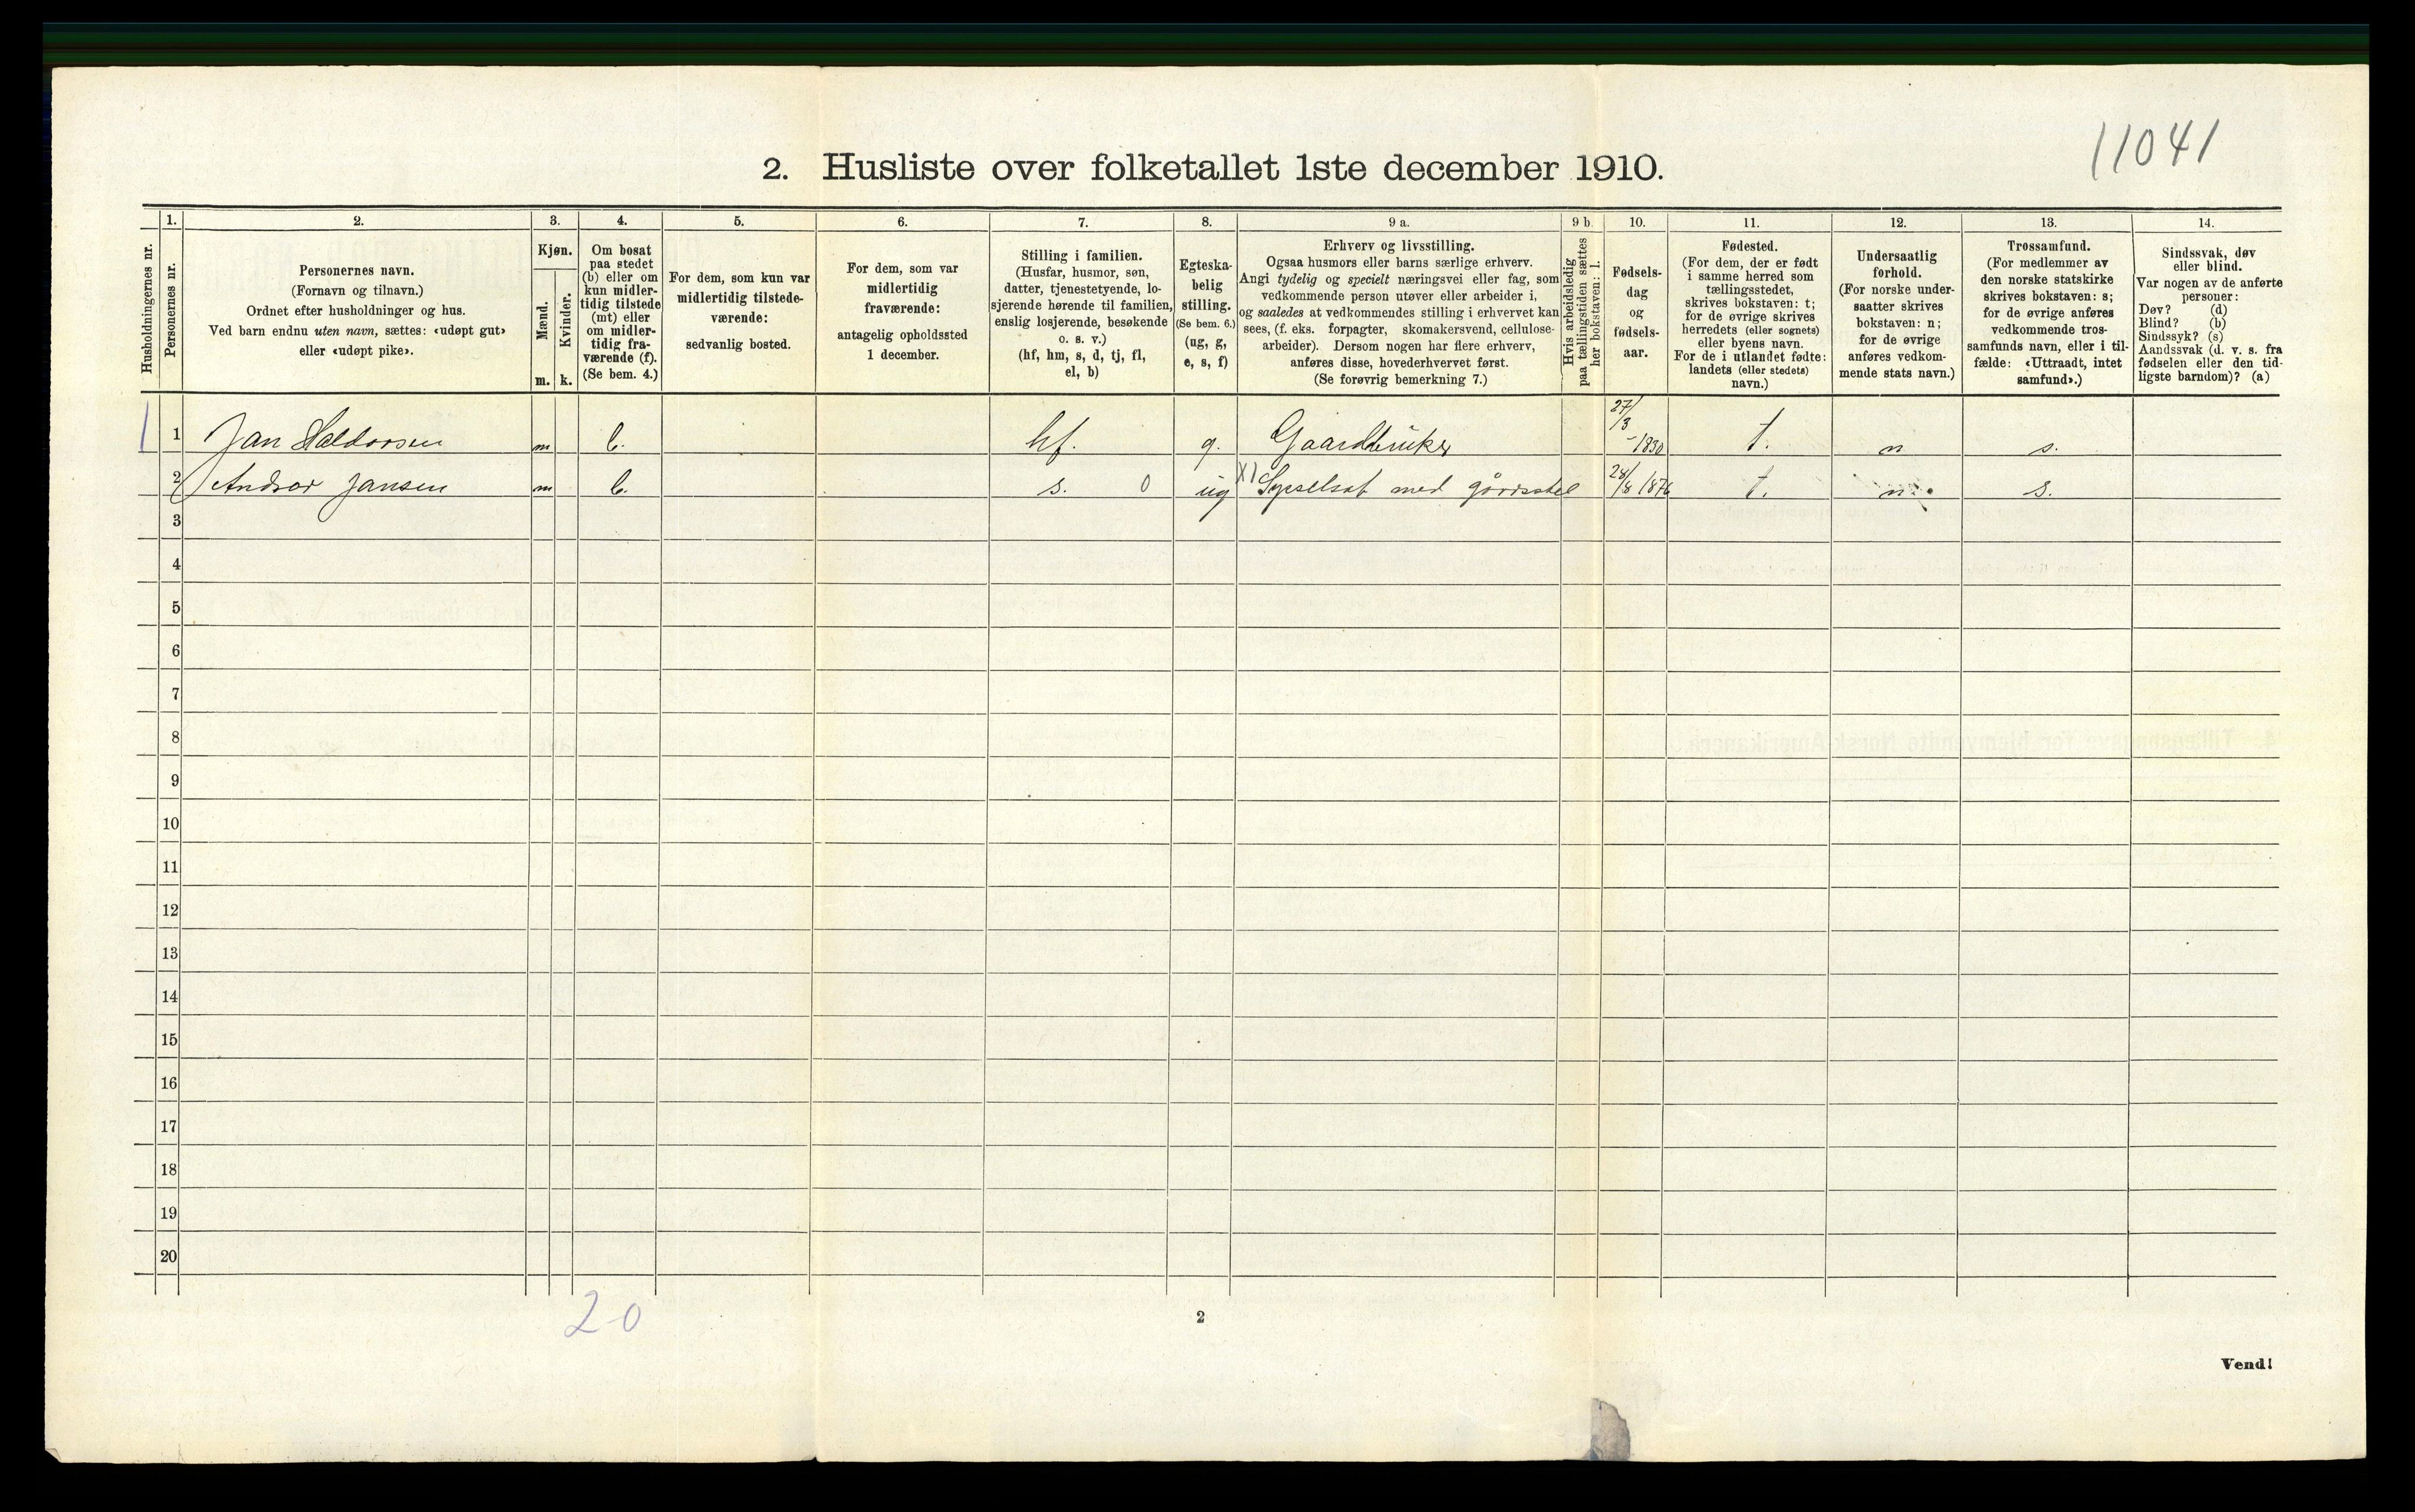 11041
2. Husliste over folketallet 1ste december 1910.
Husholdningernes nr.
1.
Personernes nr.
2.
Personernes navn.
(Fornavn og tilnavn.)
Ordnet efter husholdninger og hus.
Ved barn endnu uten navn, sættes: «udøpt gut»
eller «udøpt pike».
3.
Kjøn.
Mænd.
Kvinder.
m. k.
4.
Om bosat
paa stedet
(b) eller om
kun midler-
tidig tilstede
(mt) eller
om midler-
tidig fra-
værende (f).
(Se bem. 4.)
5.
For dem, som kun var
midlertidig tilstede-
værende:
sedvanlig bosted.
6.
For dem, som var
midlertidig
fraværende:
antagelig opholdssted
1 december.
7.
Stilling i familien.
(Husfar, husmor, søn,
datter, tjenestetyende, lo-
sjerende hørende til familien,
enslig losjerende, besøkende
o. s. v.)
(hf, hm, s, d, tj, fl,
el, b)
8.
Egteska-
belig
stilling.
(Se bem. 6.)
(ug, g,
e, s, f)
9 a.
Erhverv og livsstilling.
Ogsaa husmors eller barns særlige erhverv.
Angi tydelig og specielt næringsvei eller fag, som
vedkommende person utøver eller arbeider i,
og saaledes at vedkommendes stilling i erhvervet kan
sees, (f. eks. forpagter, skomakersvend, cellulose-
arbeider). Dersom nogen har flere erhverv,
anføres disse, hovederhvervet først.
(Se forøvrig bemerkning 7.)
9 b
Hvis arbeidsledig
paa tællingstiden sættes
her bokstaven: l.
10.
Fødsels-
dag
og
fødsels-
aar.
11.
Fødested.
(For dem, der er født
i samme herred som
tællingsstedet,
skrives bokstaven: t;
for de øvrige skrives
herredets (eller sognets)
eller byens navn.
For de i utlandet fødte:
landets (eller stedets)
navn.)
12.
Undersaatlig
forhold.
(For norske under-
saatter skrives
bokstaven: n;
for de øvrige
anføres vedkom-
mende stats navn.)
13.
Trossamfund.
(For medlemmer av
den norske statskirke
skrives bokstaven: s;
for de øvrige anføres
vedkommende tros-
samfunds navn, eller i til-
fælde: «Uttraadt, intet
samfund».)
14.
Sindssvak, døv
eller blind.
Var nogen av de anførte
personer:
Døv? (d)
Blind? (b)
Sindssyk? (s)
Aandssvak (d. v. s. fra
fødselen eller den tid-
ligste barndom)? (a)
1 1 Jan Haldorsen m b. hf. g. Gaardbruker 27/3 - 1830 t. n s.
2 Andor Jansen m b. s. 0 ug X) Sysselsat med gårdsstel 28/8 1876 t. n. s.
3
4
5
6
7
8
9
10
11
12
13
14
15
16
17
18
19
20
2-0
2
Vend!